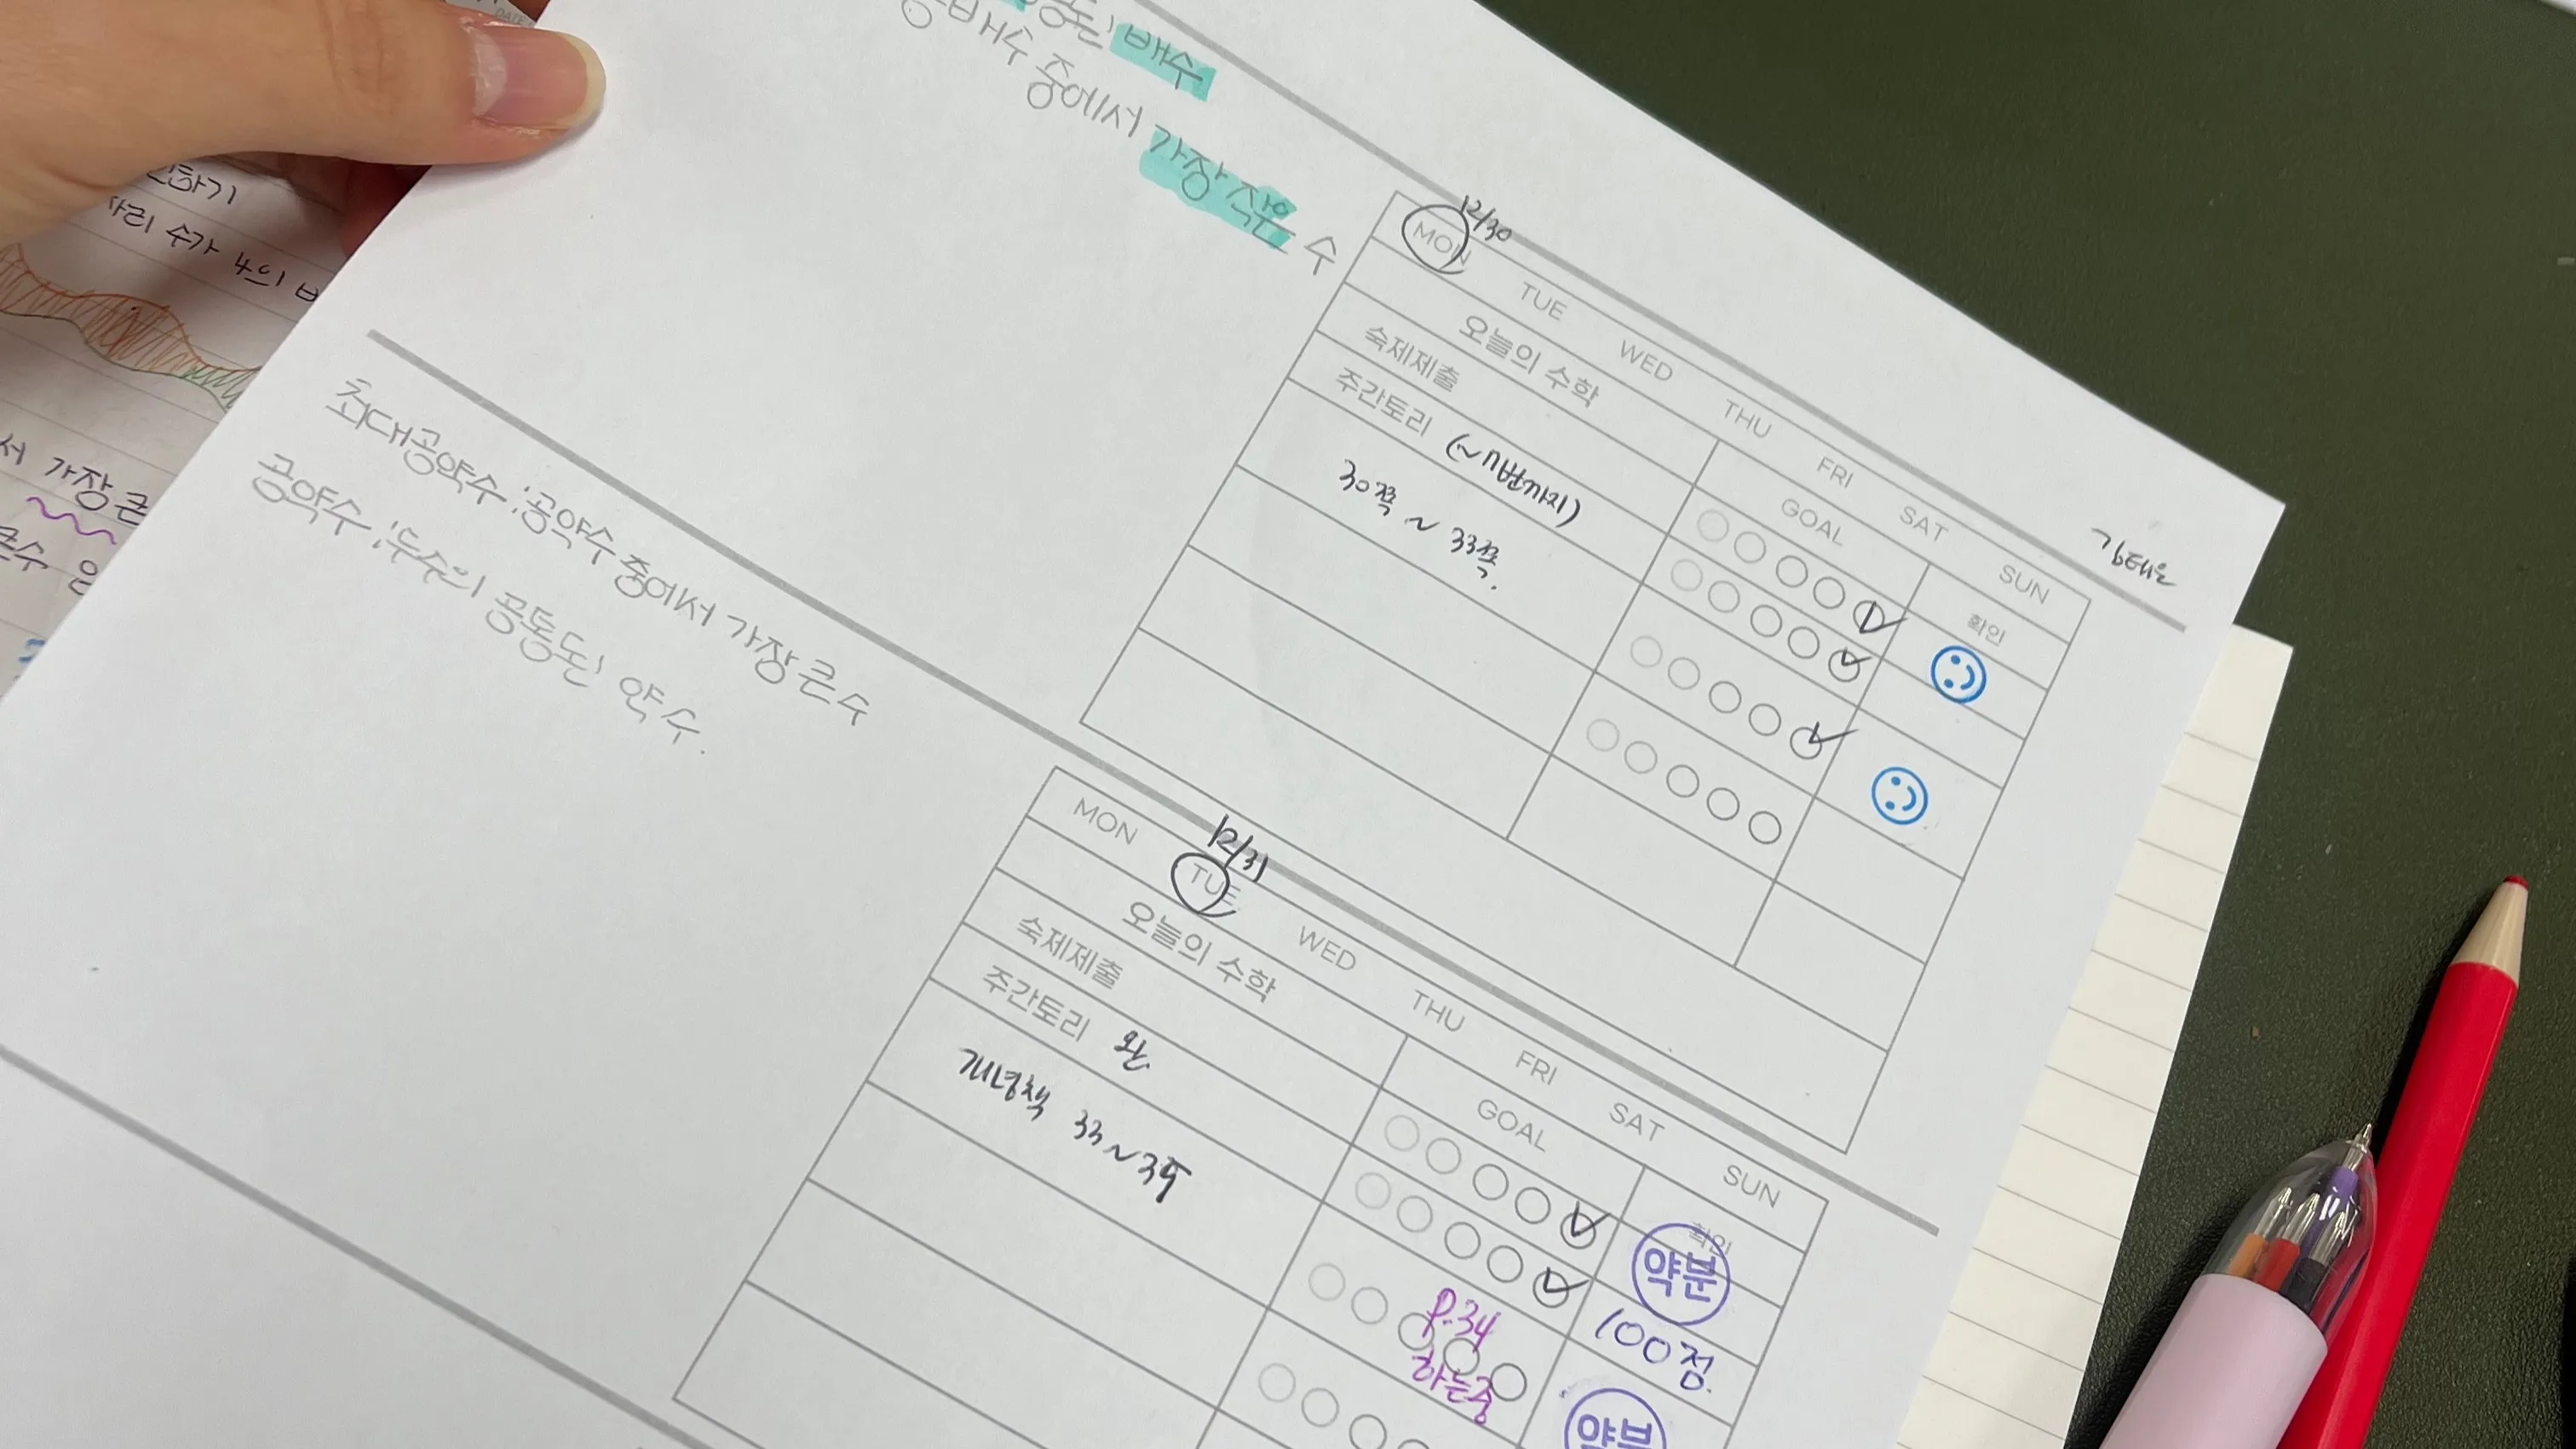 배수
중에서 가장 작은 수
자리 수가 4의
서 가장 큰
최대공약수 : 공약수 중에서 가장 큰 수
공약수 : 두수의 공통된 약수.
12/30
MON TUE WED THU FRI SAT SUN
오늘의 수학 GOAL 확인
숙제제출
주간토리 (~11번까지)
30쪽 ~ 33쪽.
12/31
MON TUE WED THU FRI SAT SUN
오늘의 수학 GOAL 확인
숙제제출
약분
주간토리 완
100점.
개념책 33~35
p.34
하는중
약분